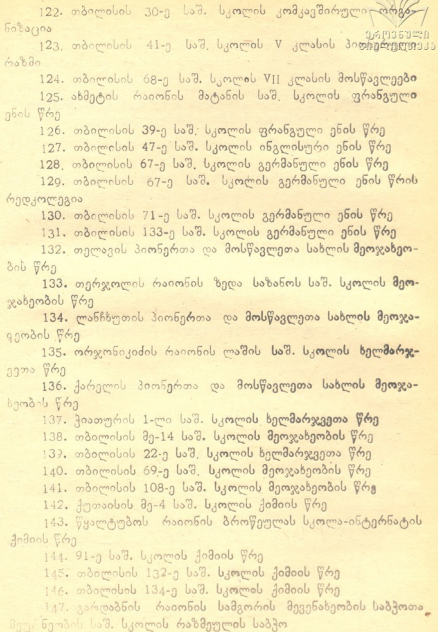 122. თბილისის 30-ე საშ. სკოლის კომკავშირული ორგა-
ნიზაცია
123. თბილისის 41-ე საშ. სკოლის V კლასის პიონერული
რაზმი
124. თბილისის 68-ე საშ. სკოლის VII კლასის მოსწავლეები
125. ახმეტის რაიონის მატანის საშ. სკოლის ფრანგული
ენის წრე
126. თბილისის 39-ე საშ. სკოლის ფრანგული ენის წრე
127. თბილისის 47-ე საშ. სკოლის ინგლისური ენის წრე
128. თბილისის 67-ე საშ. სკოლის გერმანული ენის წრე
129. თბილისის 67-ე საშ. სკოლის გერმანული ენის წრის
რედკოლეგია
130. თბილისის 71-ე საშ. სკოლის გერმანული ენის წრე
131. თბილისის 133-ე საშ. სკოლის გერმანული ენის წრე
132. თელავის პიონერთა და მოსწავლეთა სახლის მეოჯახეო-
ბის წრე
133. თერჯოლის რაიონის ზედა საზანოს საშ. სკოლის მეო-
ჯახეობის წრე
134. ლანჩხუთის პიონერთა და მოსწავლეთა სახლის მეოჯა-
ხეობის წრე
135. ორჯონიკიძის რაიონის ლაშის საშ. სკოლის ხელმარჯ-
ვეთა წრე
136. ქარელის პიონერთა და მოსწავლეთა სახლის მეოჯა-
ხეობის წრე
137. ჭიათურის 1-ლი საშ. სკოლის ხელმარჯვეთა წრე
138. თბილისის მე-14 საშ. სკოლის მეოჯახეობის წრე
139. თბილისის 22-ე საშ. სკოლის ხელმარჯვეთა წრე
140. თბილისის 69-ე საშ. სკოლის მეოჯახეობის წრე
141. თბილისის 108-ე საშ. სკოლის მეოჯახეობის წრე
142. ქუთაისის მე-4 საშ. სკოლის ქიმიის წრე
143. წყალტუბოს რაიონის ბროწეულას სკოლა-ინტერნატის
ქიმიის წრე
144. 91-ე საშ. სკოლის ქიმიის წრე
145. თბილისის 132-ე საშ. სკოლის ქიმიის წრე
146. თბილისის 134-ე საშ. სკოლის ქიმიის წრე
147. გარდაბნის რაიონის სამგორის მევენახეობის საბჭოთა
მეურნეობის საშ. სკოლის რაზმეულის საბჭო